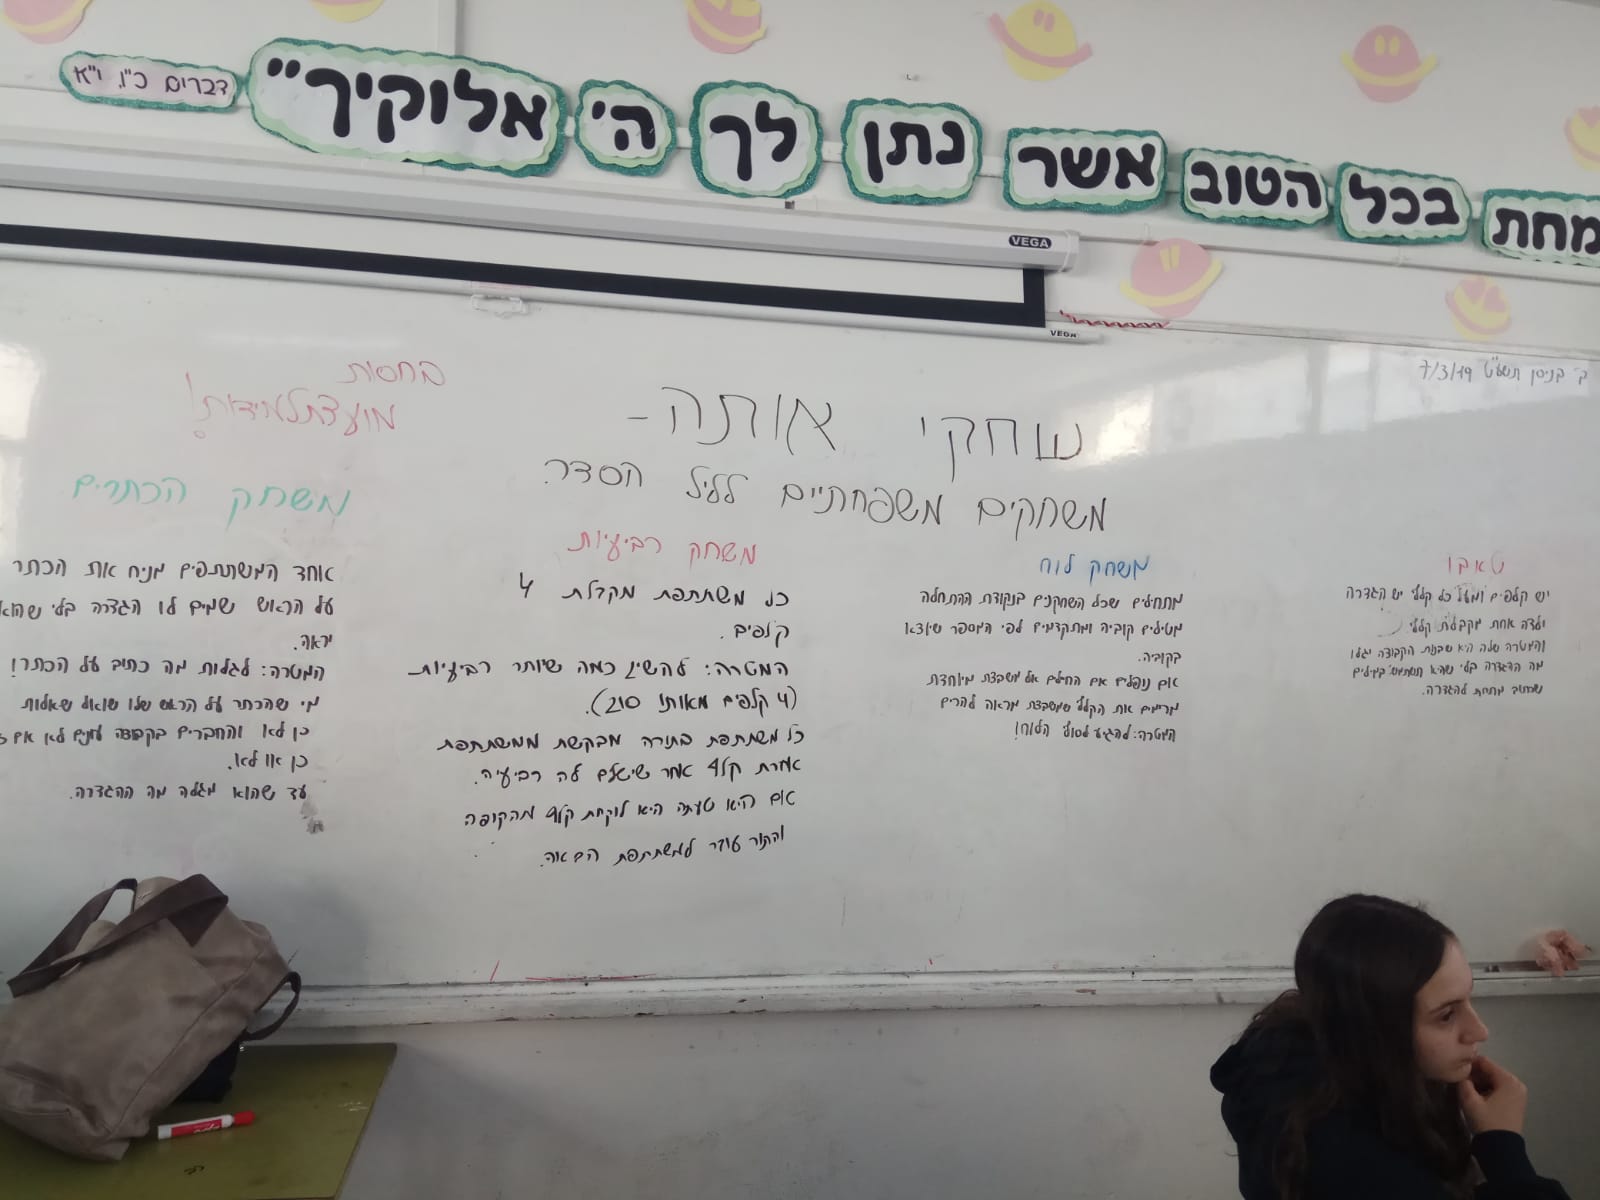 מחת בכל הטוב אשר נתן לך ה' אלוקיך"
דברים כ"ו, י"א
VEGA
VEGA
ב' בניסן תשע"ט 7/3/19
שחקי אותה -
משחקים משפחתיים לליל הסדר.
בחסות
מועצת תלמידות!
טאבו
יש קלפים ומעל כל קלף יש הגדרה
ילדה אחת מקבלת קלף
והמטרה שלה היא שבנות הקבוצה יגלו
מה ההגדרה בלי שהיא תשתמש במילים
שכתוב מתחת להגדרה.
משחק לוח
מתחילים שכל השחקנים בנקודת ההתחלה
מטילים קוביה ומתקדמים לפי המספר שיוצא
בקוביה.
אם נופלים עם החייל על משבצת מיוחדת
מרימים את הקלף שמשבצת מראה להרים
המטרה: להגיע לסוף הלוח!
משחק רביעיות
כל משתתפת מקבלת 4
קלפים.
המטרה: להשיג כמה שיותר רביעיות
(4 קלפים מאותו סוג).
כל משתתפת בתורה מבקשת ממשתתפת
אחרת קלף אחד שישלם לה רביעיה.
אם היא טעתה היא לוקחת קלף מהקופה
והתור עובר למשתתפת הבאה.
משחק הכתרים
אחד המשתתפים מניח את הכתר
על הראש ששמים לו הגדרה בלי שהוא
יראה.
המטרה: לגלות מה כתוב על הכתר!
מי שהכתר על הראש שלו שואל שאלות
כן לא והחברים בקבוצה עונים לא אם
כן או לא.
עד שהוא מגלה מה ההגדרה.